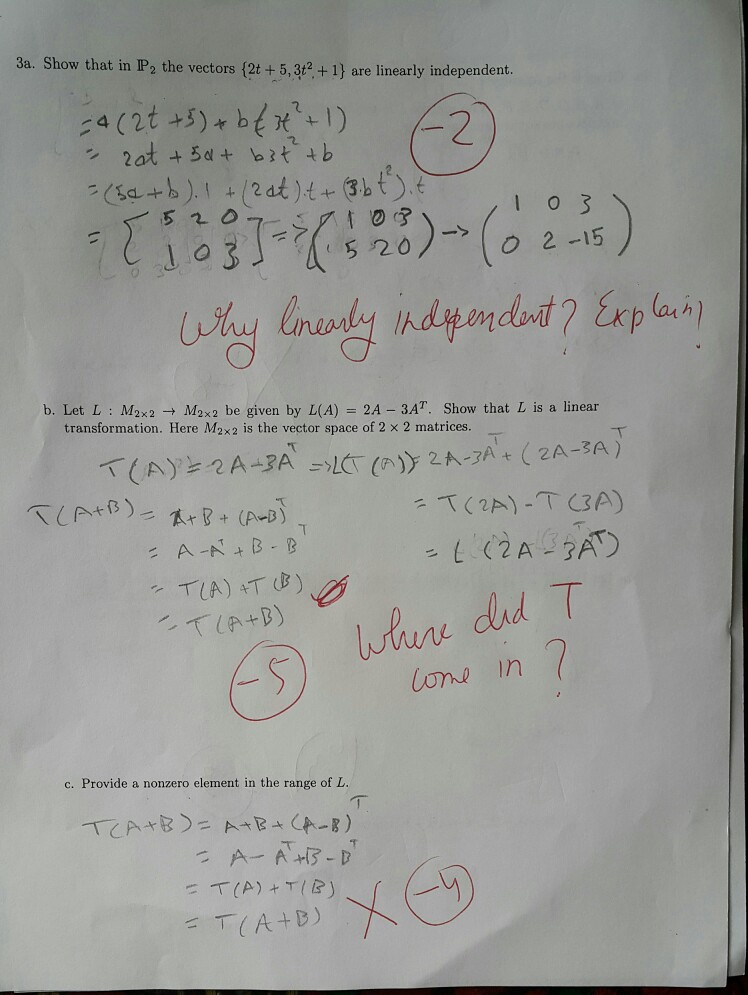 3a. Show that in ℙ₂ the vectors {2t + 5, 3t² + 1} are linearly independent.
= a(2t + 5) + b(3t² + 1)
= 2at + 5a + b3t² + b
= (5a + b).1 + (2at).t + (3bt²).t
= [5 2 0; 1 0 3] => (1 0 3; 5 2 0) -> (1 0 3; 0 2 -15)
-2
Why linearly independent? Explain!
b. Let L : M₂ₓ₂ → M₂ₓ₂ be given by L(A) = 2A − 3Aᵀ. Show that L is a linear
transformation. Here M₂ₓ₂ is the vector space of 2 × 2 matrices.
T(A) = 2A-3Aᵀ => L(T(A)) 2A-3Aᵀ + (2A-3A)ᵀ
= T(2A) - T(3A)
= L(2A - 3Aᵀ)
T(A+B) = A+B + (A-B)ᵀ
= A - Aᵀ + B - Bᵀ
= T(A) + T(B)
= T(A+B)
-5
Where did T
come in ?
c. Provide a nonzero element in the range of L.
T(A+B) = A+B + (A-B)ᵀ
= A - Aᵀ + B - Bᵀ
= T(A) + T(B)
= T(A+B)
X -4